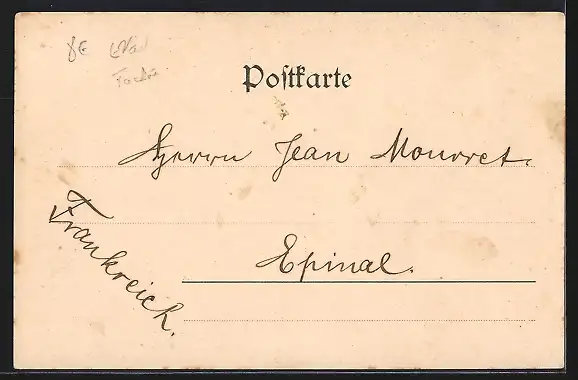 8€
Postkarte
Herrn Jean Mourret.
Epinal.
Frankreich.